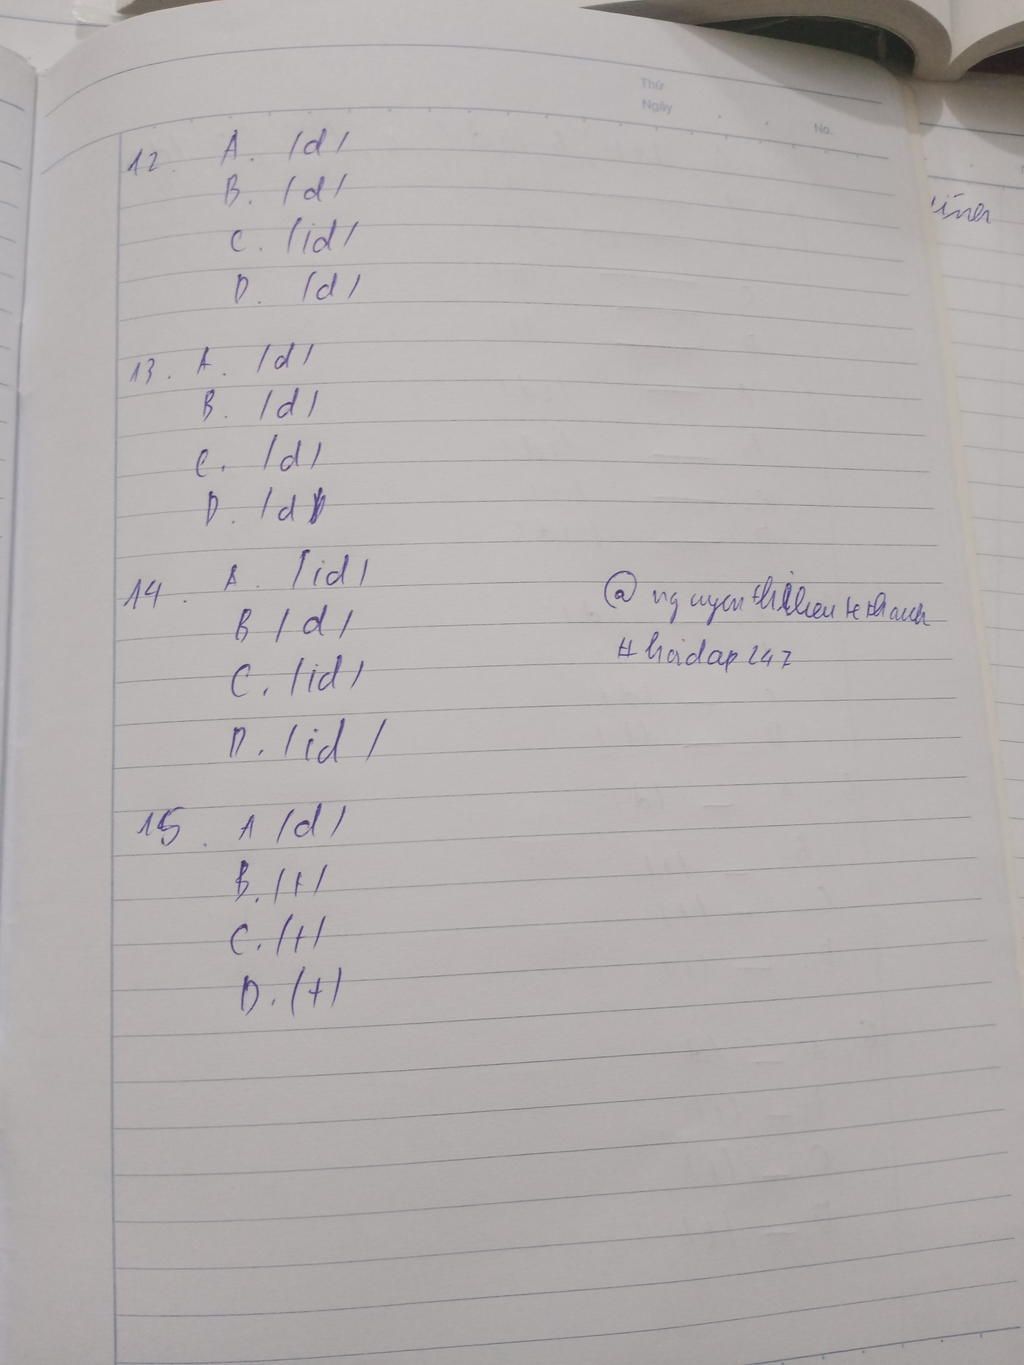 Thứ
Ngày
No.
12. A. /d/
B. /d/
C. /id/
D. /d/
13. A. /d/
B. /d/
C. /d/
D. /d/
14. A. /id/
B /d/
C. /id/
D. /id/
@
# hoidap247
15. A /d/
B. /t/
C. /t/
D. /t/